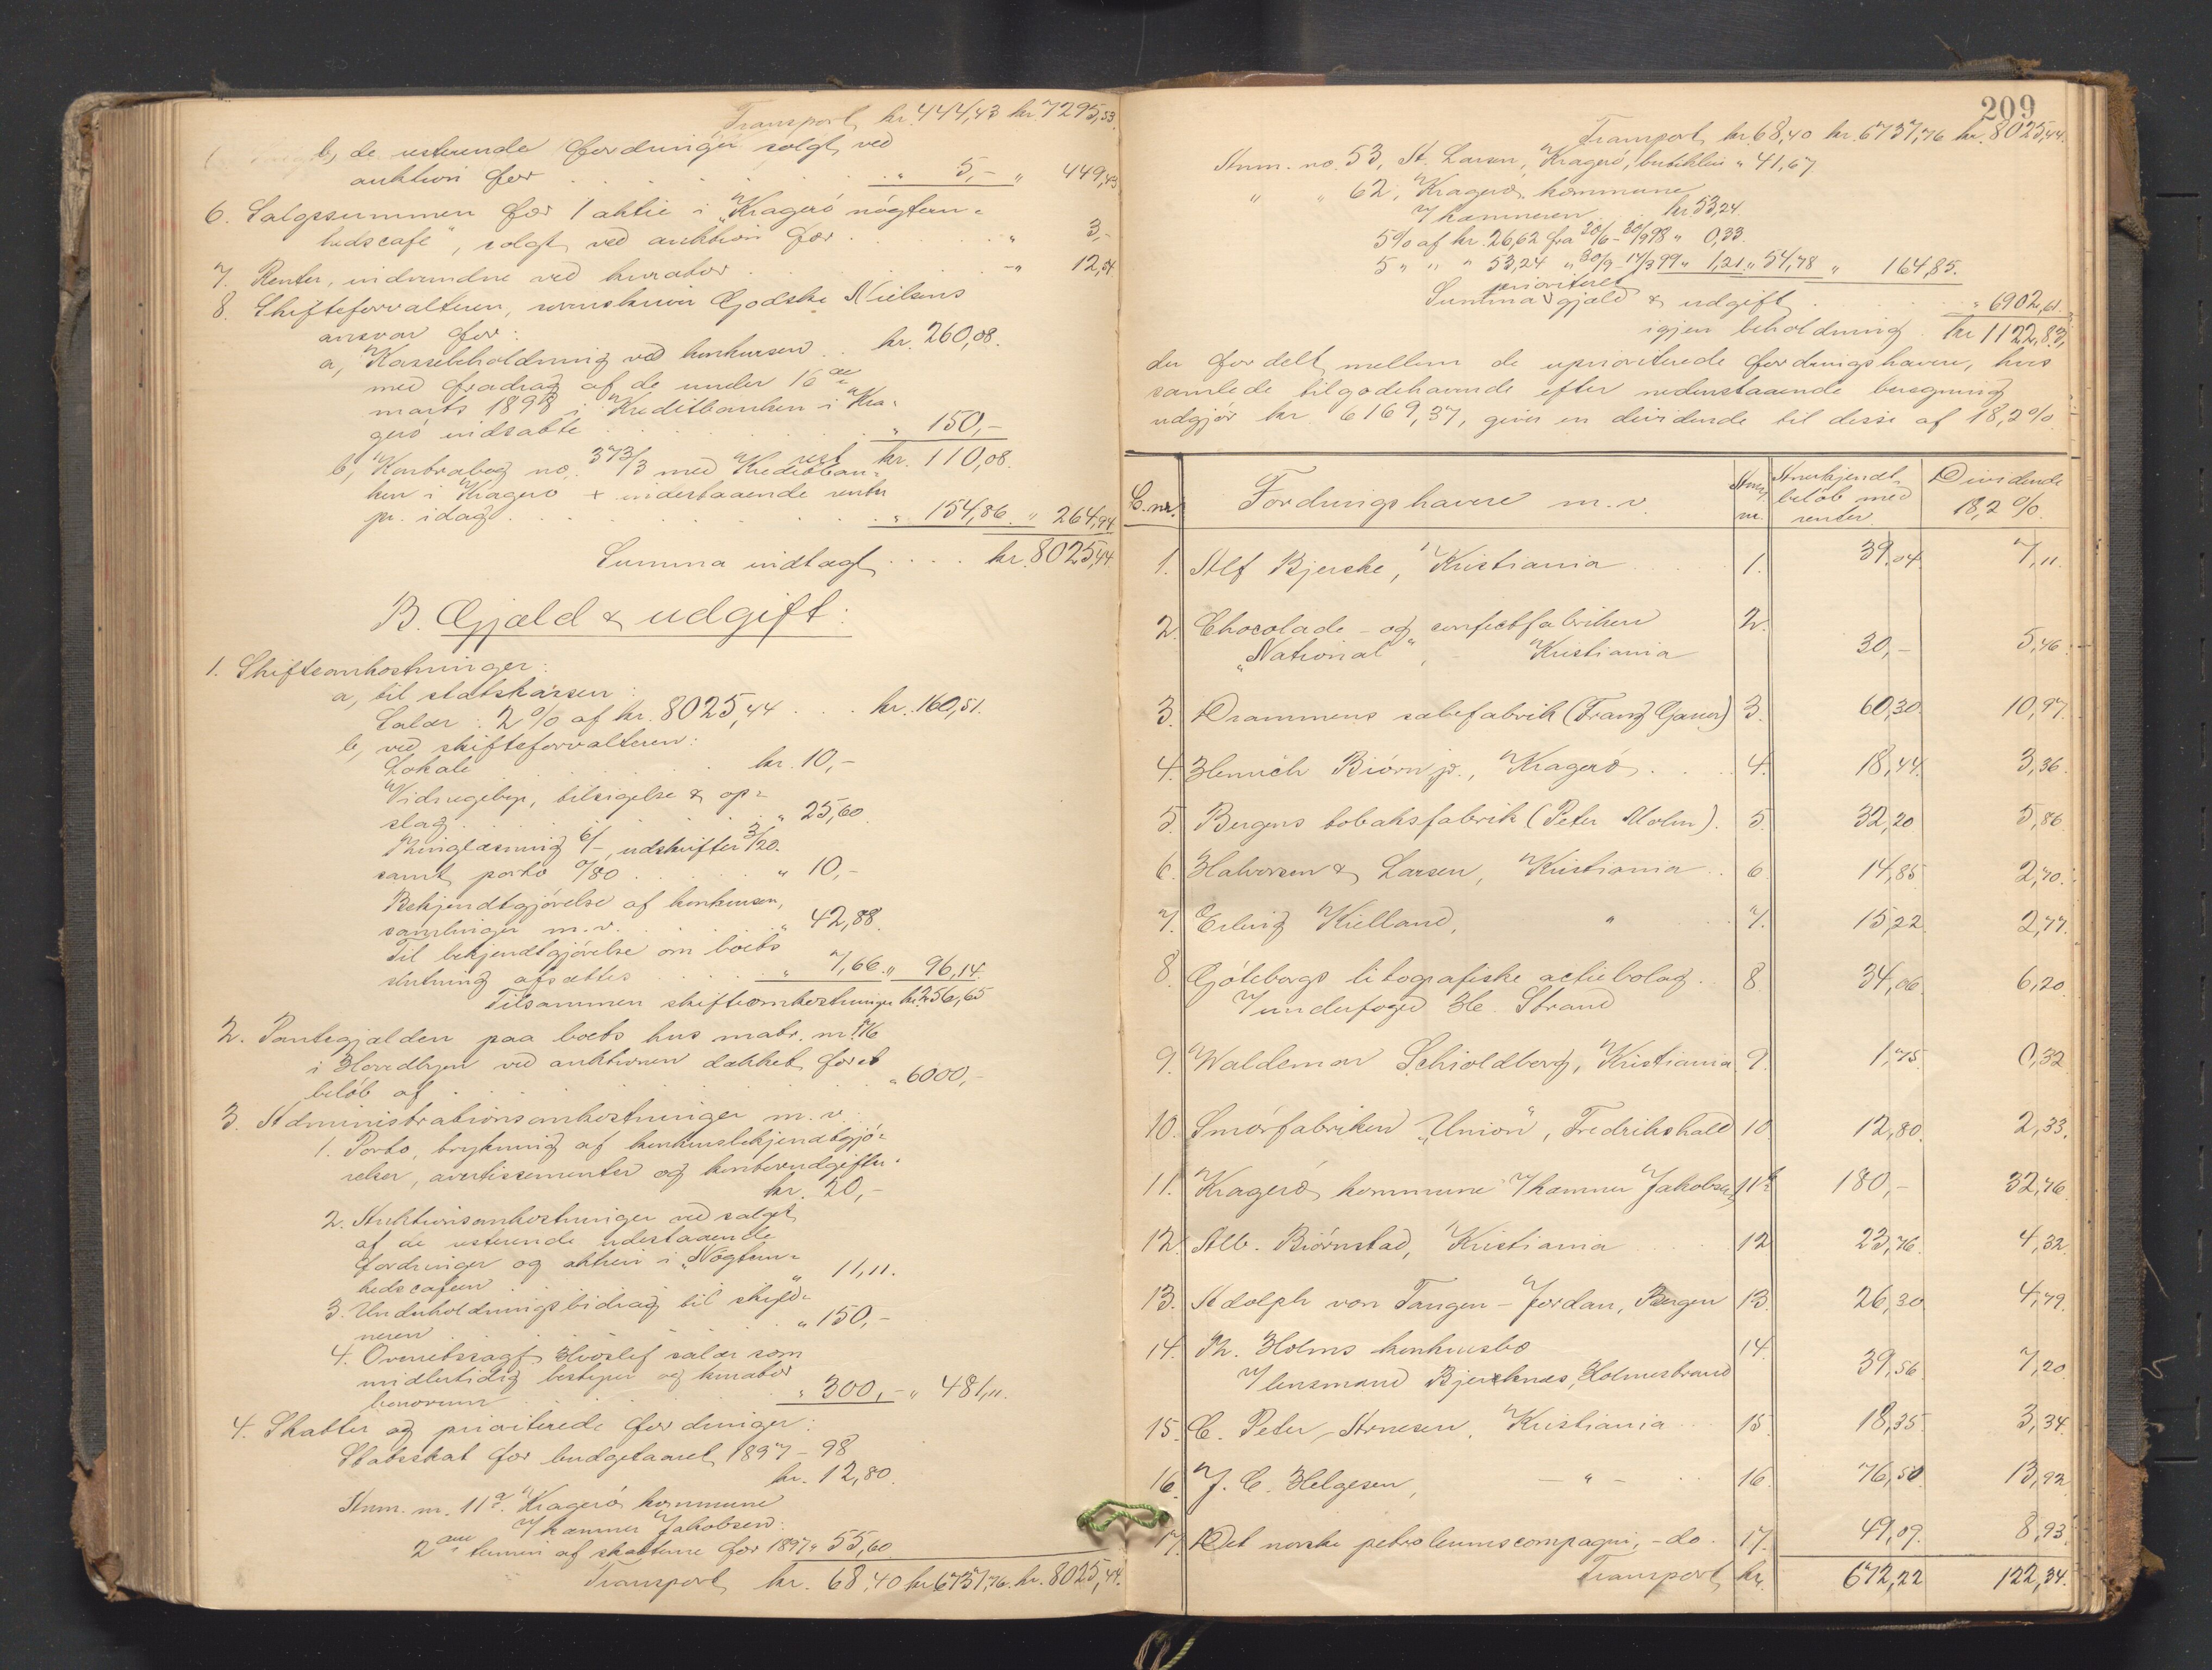 Transport kr. 444,43 kr. 7295,53.
b, de resterende fordringer solgt ved
auktion for . . . " 5,- " 449,43
6. Salgssummen for 1 aktie i "Kragerö nögtern-
hedscafé", solgt ved auktion for . . . " 3,-
7. Renter, indvundne ved kurator . . . " 12,54
8. Skifteforvalteren, sorenskriver Godske Nielsens
ansvar for:
a, Kassebeholdning ved konkursen . . kr. 260,08.
med fradrag af de under 16de
marts 1898 i Kreditbanken i Kra-
gerö indsatte . . . " 150,-
rest kr. 110,08.
b, Kontrabog no. 373/3 med Kreditban-
ken i Kragerö + indestaaende renter
pr. idag . . . " 154,86 " 264,94
Summa indtægt . . . . kr. 8025,44
B. Gjæld & udgift:
1. Skifteomkostninger:
a, til statskassen:
Salær: 2% af kr. 8025,44 . . . kr. 160,51.
b, ved skifteforvalteren:
Lokale . . . kr. 10,-
Vidnegebyr, tilsigelse & op-
slag . . . " 25,60
Thinglæsning 6/-, udskrifter 3/20.
samt porto 0/80 . . . " 10,-
Bekjendtgjörelse af konkursen,
samlinger m. v. . . . " 42,88.
Til bekjendtgjörelse om boets
slutning afsættes . . . " 7,66 " 96,14.
Tilsammen skifteomkostninger kr. 256,65
2. Pantegjælden paa boets hus matr. nr. 116
i Hovedbyen ved auktionen dækket for et
belöb af . . . " 6000,-
3. Administrationsomkostninger m. v.:
1. Porto, trykning af konkursbekjendtgjö-
relser, avertissementer og kontorudgifter.
kr. 20,-
2. Auktionsomkostninger ved salget
af de resterende udestaaende
fordringer og aktien i "Nögtern-
hedscafeen" . . . 11,11.
3. Underholdningsbidrag til skyld-
neren . . . " 150,-
4. Overretssagf. Hvoslef salær som
midlertidig bestyrer og kurator
bonorum . . . " 300,- " 481,11.
4. Skatter og prioriterede fordringer:
Statsskat for budgetaaret 1897-98
kr. 12,80.
Anm. nr. 11a. Kragerö kommune
v/ kæmner Jakobsen:
2den termin af skatterne for 1897 " 55,60
Transport kr. 68,40 kr. 6737,76. kr. 8025,44.
209
Transport kr. 68,40 kr. 6737,76 kr. 8025,44.
Anm. no. 53, A. Larsen, Kragerö, husleie " 41,67
" " 62, Kragerö kommune
v/ kæmneren . . . kr. 53,24
5% af kr. 26,62 fra 20/6-20/9 98 " 0,33.
5 " " " 53,24 " 20/9-17/3 99 " 1,21 " 54,78 " 164,85.
Summa prioriteret gjæld & udgift . . . " 6902,61.
igjen beholdning kr. 1122,83,
der fordelt mellem de uprioriterede fordringshavere, hvis
samlede tilgodehavende efter nedenstaaende beregning
udgjör kr. 6169,37, giver en dividende til disse af 18,2%.
L. nr. Fordringshavere m. v. Anm. nr. Anerkjendt belöb med renter. Dividende 18,2%.
1. Alf Bjercke, Kristiania . . . 1. 39,04 7,11.
2. Chocolade- og confectfabriken 2.
"National", Kristiania 30,- 5,46.
3. Drammens sæbefabrik (Franz Gauer) 3. 60,30. 10,97.
4. Henrich Biörn jr., Kragerö . . . 4. 18,44. 3,36.
5. Bergens tobaksfabrik (Peter Molm). 5. 32,20 5,86.
6. Halvorsen & Larsen, Kristiania . . 6. 14,85 2,70.
7. Erling Kielland, " . . . 7. 15,22 2,77.
8. Göteborgs litografiske actiebolag . . 8. 34,06. 6,20.
v/ underfoged H. Strand
9. Waldemar Schioldborg, Kristiania 9. 1,75. 0,32
10. Smörfabriken "Union", Fredrikshald 10. 12,80. 2,33.
11. Kragerö kommune v/ kæmner Jakobsen 11b 180,- 32,76.
12. Alb. Biörnstad, Kristiania 12 23,76. 4,32.
13. Adolph von Tangen-Jordan, Bergen 13. 26,30 4,79.
14. Th. Holms konkursbo 14.
v/ lensmand Bjerknæs, Holmestrand 39,56. 7,20.
15. C. Peter-Arnesen, Kristiania . . . 15. 18,35. 3,34.
16. J. C. Helgesen, - " - . . . 16. 76,50. 13,92
17. Det norske petroleumscompagni, - do. 17. 49,09. 8,93.
Transport kr. 672,22 122,34.